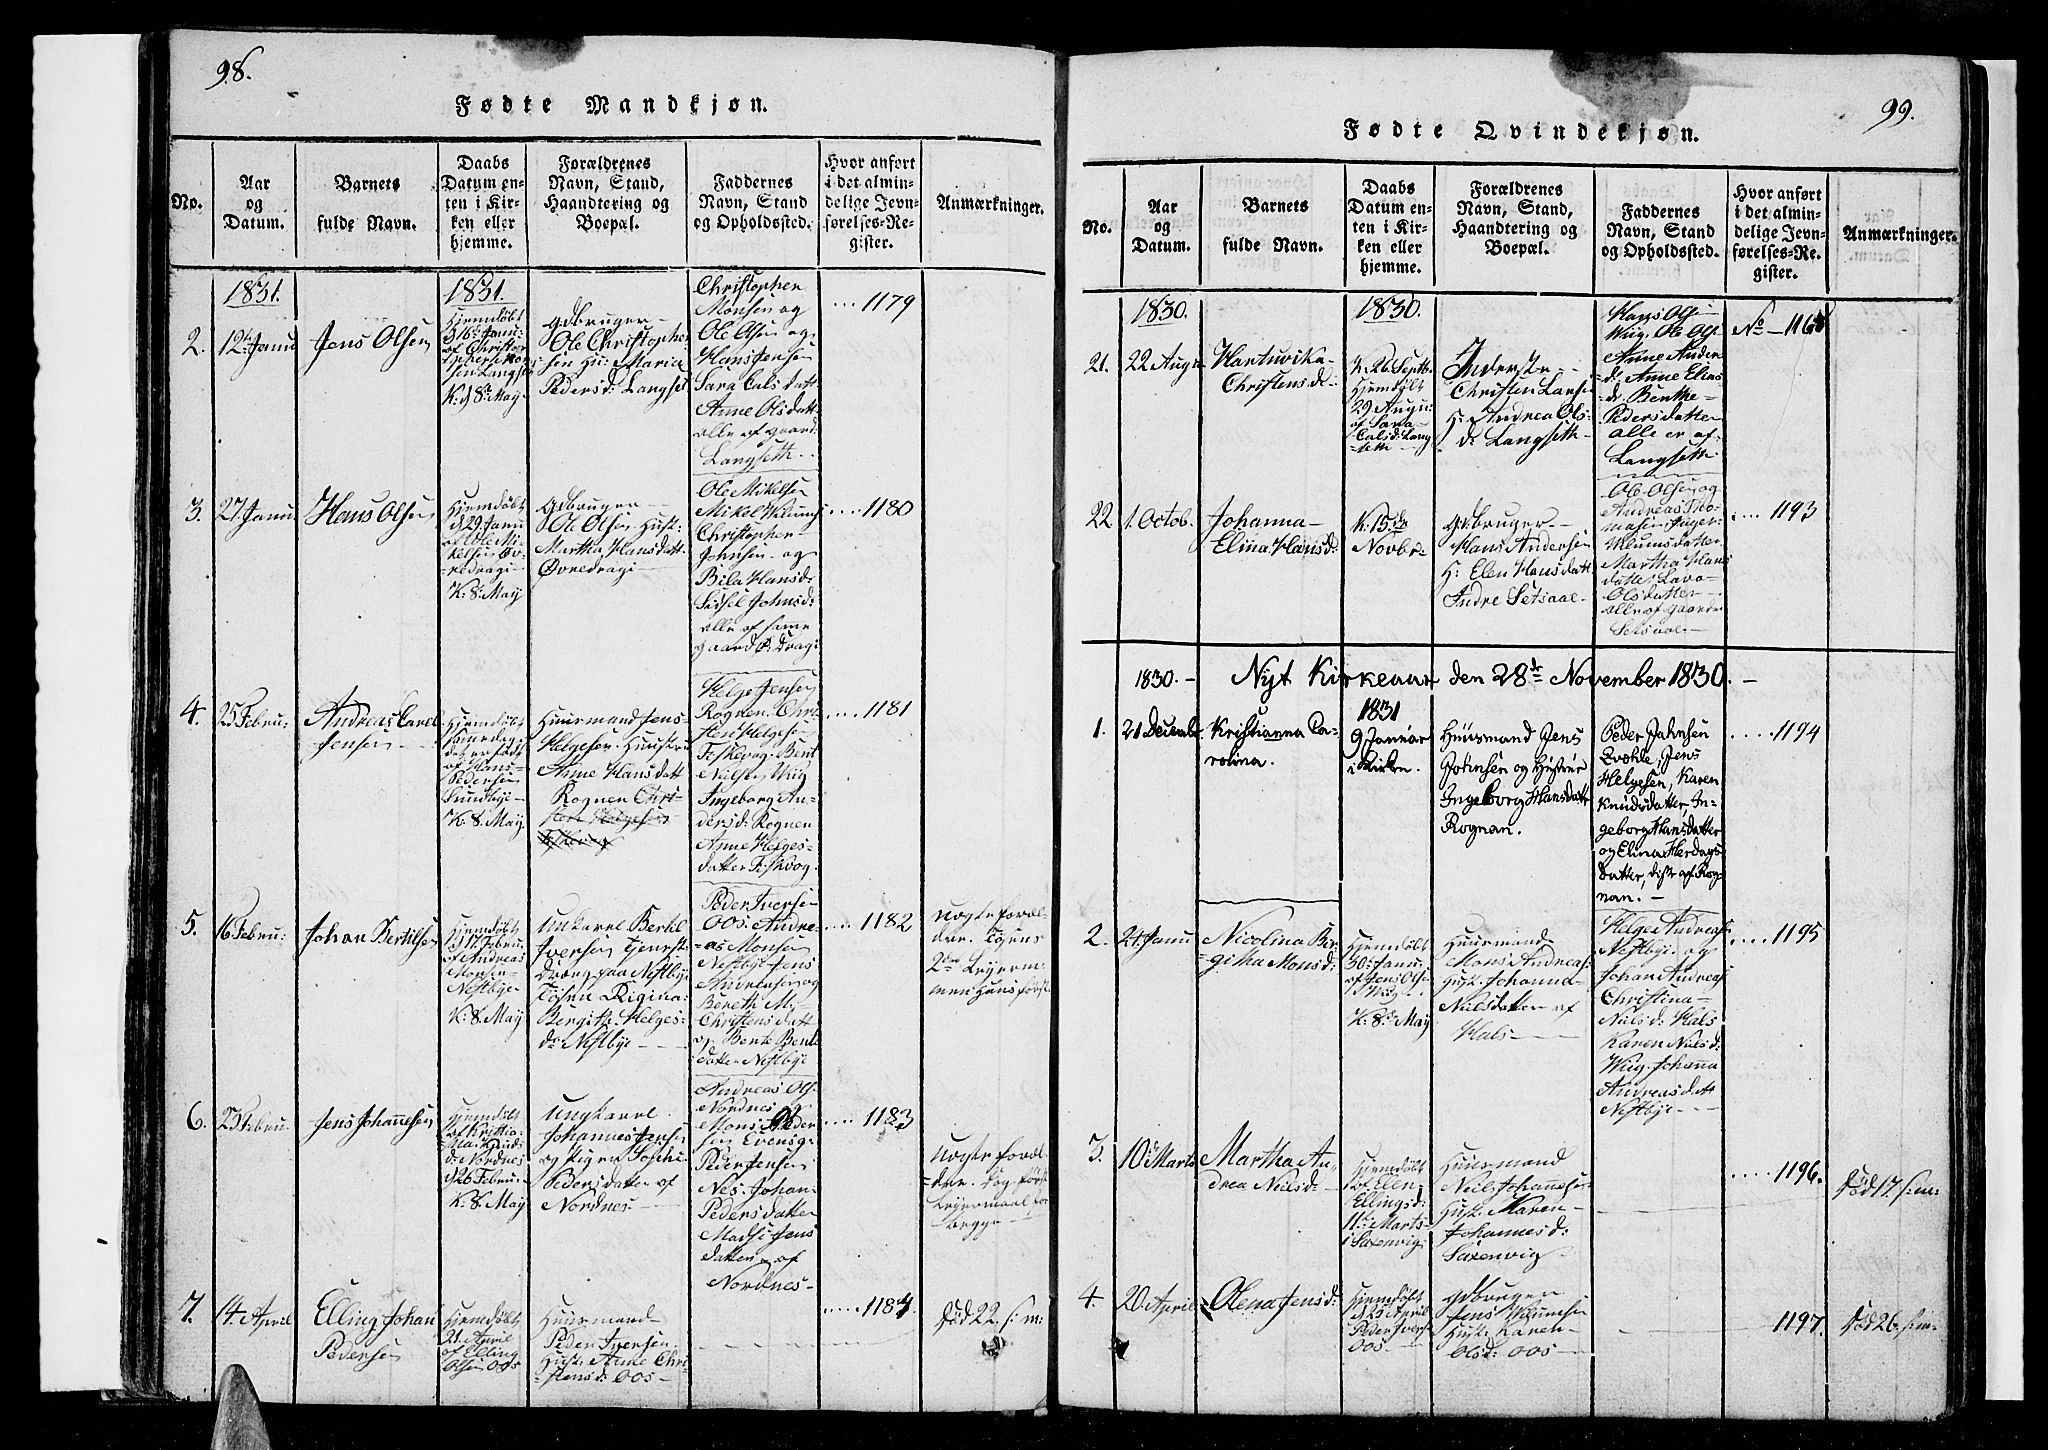 98.
Fødte Mandkjøn.
No.
Aar
og
Datum.
Barnets
fulde Navn.
Daabs
Datum en-
ten i Kir-
ken eller
hjemme.
Forældrenes
Navn, Stand,
Haandtering og
Boepæl.
Faddernes
Navn, Stand
og Opholdssted.
Hvor anført
i det almin-
delige Jevn-
førelses-Re-
gister.
Anmærkninger.
1831.
2.
12te Janu
Jens Olsen
1831.
Hjemdøbt
16: Janu:
af Christo-
K: d 8de May
Gdbruger
Ole Christophe
sen Hu: Maria
Pedersd: Langset
Christopher
Monsen og
Ole Olsen og
Hans Jensen
Sara Calsdatt
Anne Olsdatt
alle af gaard
Langseth
1179
3.
27 Janu
Hans Olsen
Hjemdøbt
d 29 Janu
af Ole Mi-
kelsen Øv-
redragi
K: 8: May
Gdbruger
Ole Olsen Hust:
Martha Hansdatt
Øvredragi
Ole Mikelsen
Mikel Wilums
Christopher
Johnsen og
Bila Hansd:
Sidsel Johnsd:
alle af samme
gaard Ø: Dragi
1180
4.
25 Febru:
Andreas Carel
Jensen
Hjemdøbt
samedag
der er født
af Hans
Pedersen
Sundbye
K: 8. May
Huusmand Jens
Helgesen Huustru
Anne Hansdatt
Rognen
Helge Jensen
Rognen Chri
sten Helgesen
Fiskevog Bent
Nilsen Wiig
Ingeborg An-
dersd: Rognen
Anne Helges-
datter Fiskvog
1181
5.
16 Febru:
Johan Bertilsen
Hjemdøbt
d 17 Febru:
af Andreas
Monsen
Nestbye
K: 8. May
Unkarel Bertel
Iversen Tjenest
dræng paa Nestbye
Tøsen Rigina
Birgithe Helges-
d: Nestbye
Peder Iverse
OOS. Andre-
as Monsen
Nestbye Jens
Andersen og
Bereth M:
Christensdatt
og Bente Bent
datter Nestbye
1182
Uægte foræl-
dre. Tøsens
2den Leyerm.
men Hans først
6.
23 Febru.
Jens Johannesen
Hjemdøbt
af Kristia-
na Knud:
d: Nordnes
d 26 Febru:
K: 8. May
Ungkarel
Johannes Jensen
og pigen Sophi
Pedersdatter af
Nordnes
Andreas Ols-
Nordnes og
Mons Peder
sen Evensg-
Peder Jensen
Nes. Johan-
Pedersdatter
Madsi Jens
datter af
Nordnes
1183
Uægte foræl-
dre. Dog først
Leyermaal for
begge
7.
14 April
Elling Johan
Pedersen
Hjemdøbt
21. April
af Elling
Olsen OOS
Huusmand
Peder Iversen
Hust: Anne Chri
stensd: OOS
1184
Død 22. s: m:
99.
Fødte Qvindekjøn.
No.
Aar
og
Datum.
Barnets
fulde Navn.
Daabs
Datum en-
ten i Kir-
ken eller
hjemme.
Forældrenes
Navn, Stand,
Haandtering og
Boepæl.
Faddernes
Navn, Stand
og Opholdssted.
Hvor anført
i det almin-
delige Jevn-
førelses-Re-
gister.
Anmærkninger.
1830.
21.
22 Augu
Hartuvika
Christensd:
1830.
K: 26 Septb.
Hjemdøbt
29 Augu:
af Sara
Calsd: Lang
seth
Inderste
Christen Larse
H: Andrea Ols-
d: Langseth
Hans Olse
Wiig. Ole Ols
Anne Ander
d: Anne Elias
d: Benthe
Pedersdatter
alle er af
Langseth
No
22
1. Octob.
Johanna
Elina Hansd:
K: 15de
Novbr
Gdbruger
Hans Andersen
H: Elen Hansdatt
Indre Setsaae
Ole Olsen og
Andreas Tho-
masen Inger
Wilumsdatter
Martha Hans
datter Lava
Olsdatter
alle af gaarden
Setsaae
1193
1830. – Nyt Kirkeaar den 28de November 1830. –
1.
21 Decemb
Kristianna Ca-
rolina.
1831
9 Januar
i Kirken.
Huusmand Jens
Johnsen og Hustrue
Ingeborg Hansdatter
Rognan.
Peder Jahnsen
Evohle, Jens
Helgesen, Karen
Knudsdatter In-
geborg Hansdatter
og Elina Herdags
datter, diste af Rog-
nan. –
1194
2.
24 Janu
Nicolina Ber-
githa Monsd:
Hjemdøbt
30: Janu:
af Jens Olse
Wiig
K: 8de May
Huusmand
Mons Andreas:
Hust: Johanna
Nilsdatter af
Hals
Helge Andreas
Nestbye og
Johan Andreas
Christina
Nilsd: Hals
Karen Nilsd:
Wiig. Johana
Andreasdatt
Nestbye
1195
3.
10de Marts
Martha An-
drea Nilsd:
Hjemdøbt
af Elen
Ellingsd:
11te Marts
i Saxenvig
Huusmand
Nils Johannesen
Hust: Karen
Johannesd:
Saxenvig
1196.
Død 17. s: m:
4.
20 April
Olena Jensd:
Hjemdøbt
d 25 April
Peder Iverse
OOS
Gdbruger
Jens Wilumsen
Hust: Karen
Olsd: OOS
1197.
Død 26. s: m: